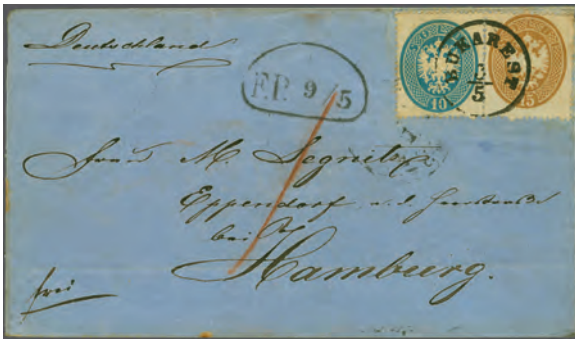 Deutschland
F.P. 9/5
BUKAREST
5
10
15
M.
Eppendorf a.d.
bei
Hamburg.
frei